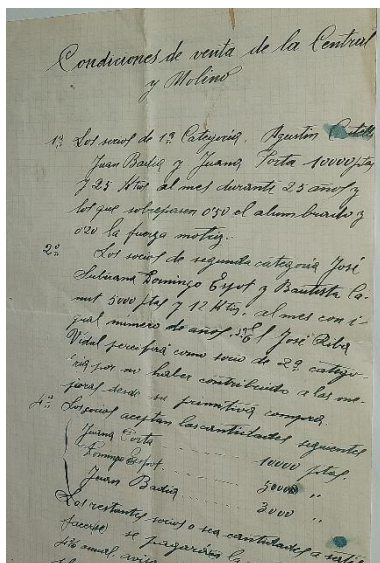 Condiciones de venta de la Central
y Molino
1º Los socios de 1ª Categoria. Agustin
Juan Badia y Juana Porta 10000 ptas
y 25 Htrs al mes durante 25 años y
los que sobrepasen 0'50 el alumbrado y
0'20 la fuerza motriz.
2º Los socios de segunda categoria José
Subirana Domingo Espot y Bautista La-
mus 5000 ptas y 12 Htrs. al mes con i-
gual numero de años. 3º El José Riba
Vidal percibirá como socio de 2ª catego-
ria por no haber contribuido a las me-
joras desde su primitiva compra.
4º Los socios aceptan las cantidades siguientes
Juana Porta 10000 ptas.
Domingo Espot 5000 "
Juan Badia 3000 "
Los restantes socios o sea cantidades a satis-
facerse se pagarán
anual,